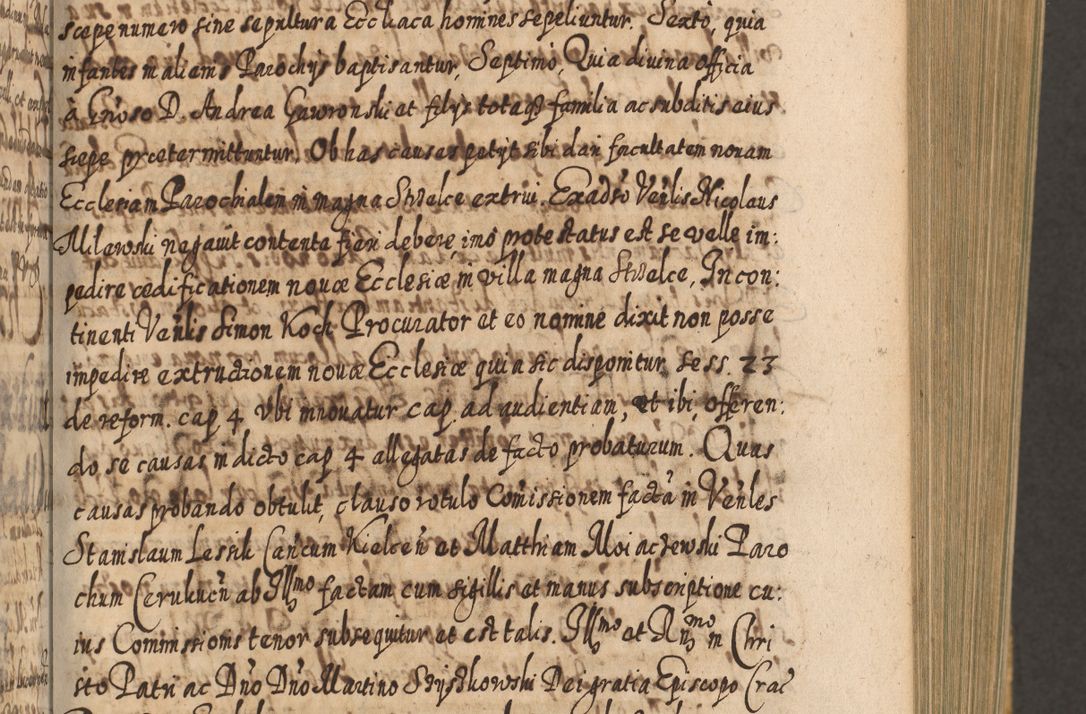 scepenumero sine sepultura Eccliaca homines sepeliuntur. Sexto, quia
infantes in alienis Parochijs baptisantur, Septimo, Quia divina officia
à Gnoso D. Andrea Gawronski et filijs totaq familia ac subditis eius
sepe prætermittuntur. Ob has causas petijt sibi dari facultatem novam
Ecclesiam Parochialem in magna Strzelce extrui. Exadso Venlis Nicolaus
Milewski negavit contenta fieri debere, imo protestatus est se velle im:
pedire ædificationem novæ Ecclesiæ in villa magna Strzelce, In con:
tinenti Venlis Simon Koch Procurator et eo nomine dixit non posse
impedire extructionem novæ Ecclesiæ quia sic disponitur sess. 23
de reform. cap 4 Vbi innovatur cap. ad audientiam, et ibi offeren:
do se causas in dicto cap 4 allegatas de facto probaturum. Quas
causas probando obtulit, clauso rotulo Comissionem factã in Venles
Stanislaum Lessik Cancum Kielceñ et Matthiam Moiaczewski Paro
chum ab Illmo factam cum sigillis et manus subscriptione cu:
ius Commissionis tenor subsequitur et est talis. Illmo et Rmo in Chri
sto Patri ac Dño Dño Martino Szyszkowski Dei gratia Episcopo Crac